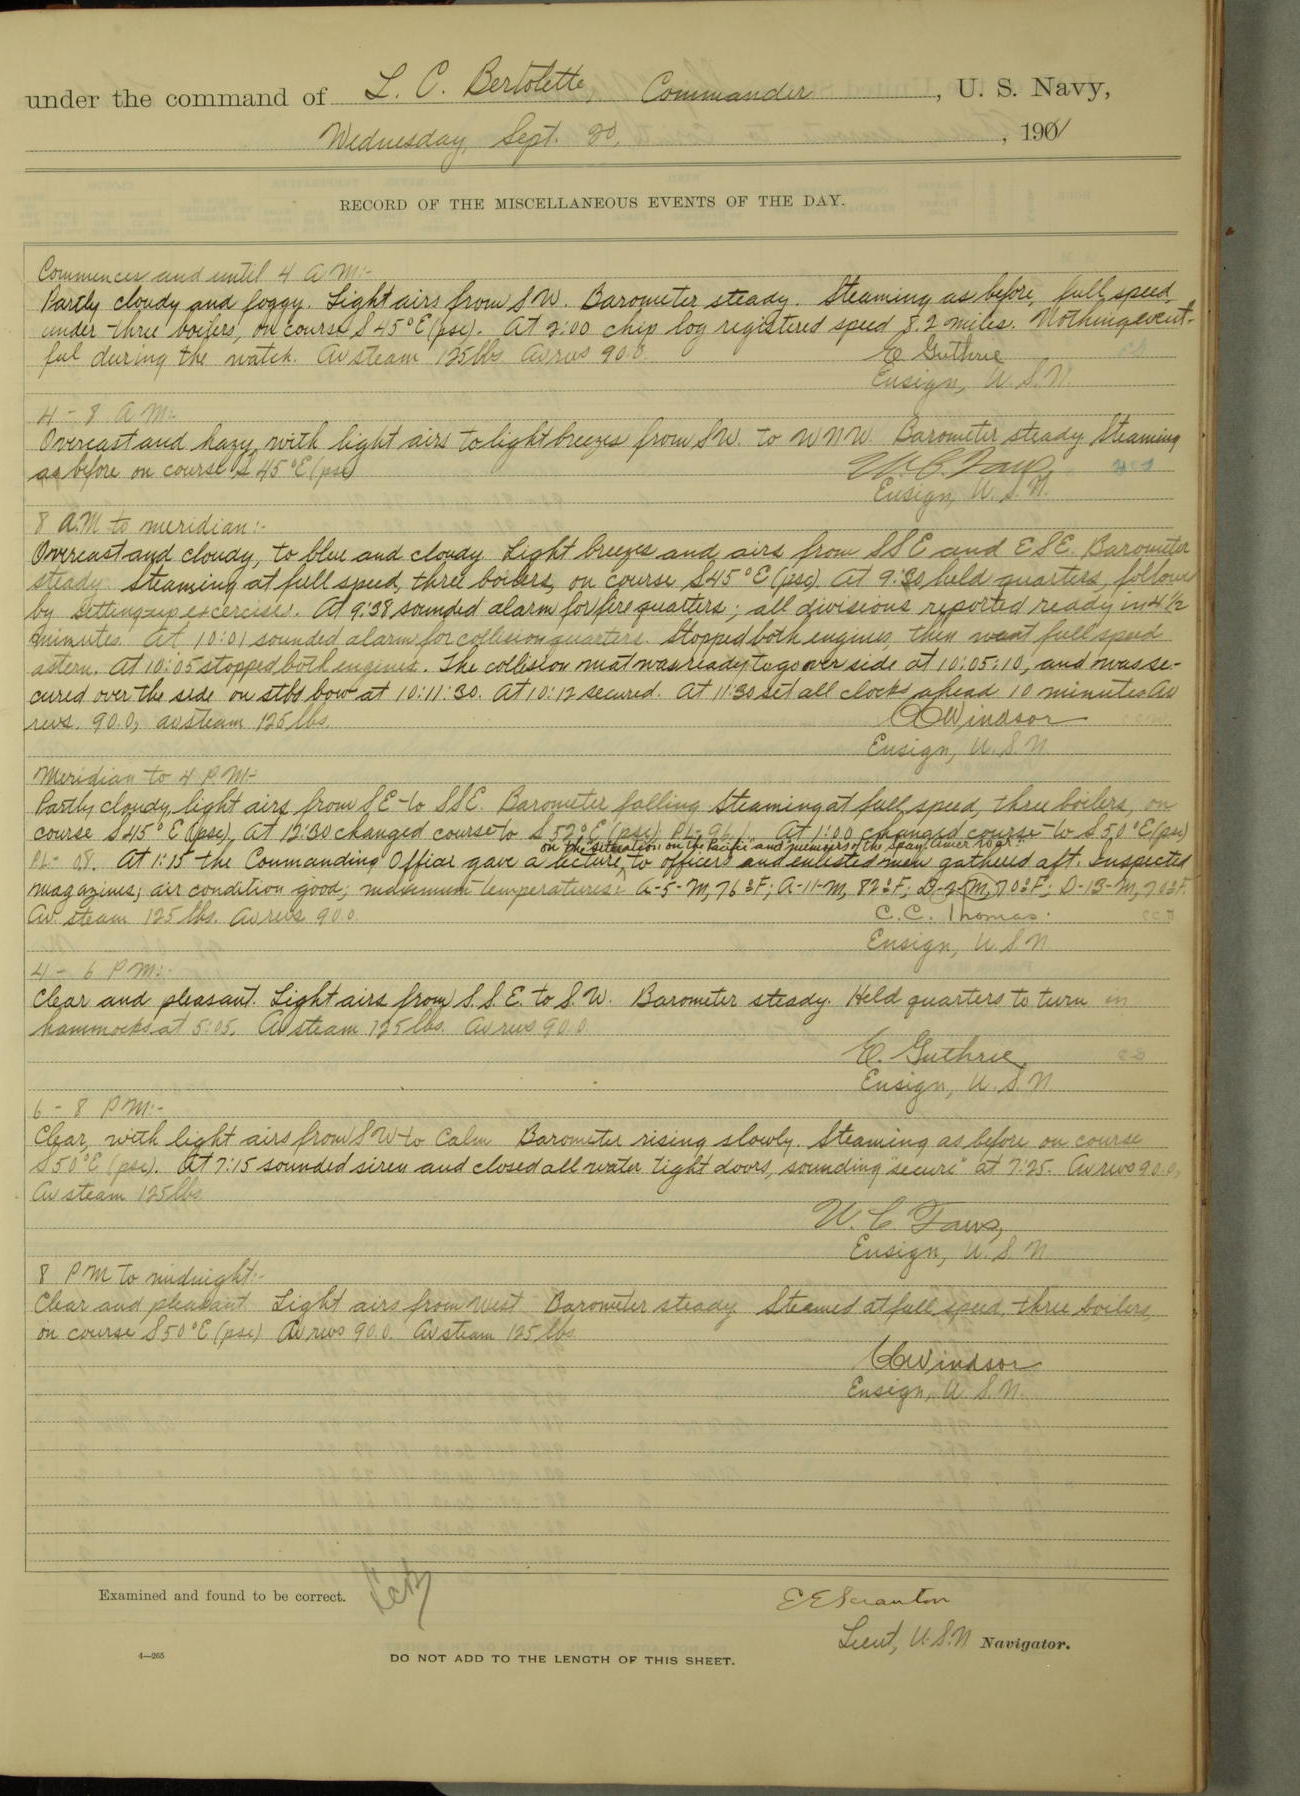 under the command of L. C. Bertolette, Commander, U. S. Navy,
Wednesday, Sept. 20, 190
RECORD OF THE MISCELLANEOUS EVENTS OF THE DAY.
Commences and until 4 A M:-
Partly cloudy and foggy. Light airs from SW. Barometer steady. Steaming as before, full speed,
under three boilers, on course S45°E (psc). At 2:00 chip log registered speed 8.2 miles. Nothing event-
ful during the watch. Av steam 125 lbs Av revs 90.0.
E Guthrie
Ensign, U. S. N.
4 - 8 A M:-
Overcast and hazy, with light airs to light breezes from SW. to WNW. Barometer steady. Steaming
as before on course S 45°E (psc)
Ensign, U. S. N.
8 A.M to meridian:-
Overcast and cloudy, to blue and cloudy. Light breezes and airs from SSE and ESE. Barometer
steady. Steaming at full speed, three boilers, on course S45°E (psc) At 9:30 held quarters, followed
by setting-up exercises. At 9:38 sounded alarm for fire quarters; all divisions reported ready in 4 1/2
minutes. At 10:01 sounded alarm for collision quarters. Stopped both engines, then went full speed
astern. At 10:05 stopped both engines. The collision mat was ready to go over side at 10:05:10, and was se-
cured over the side on stbd bow at 10:11:30. At 10:12 secured. At 11:30 set all clocks ahead 10 minutes Av
revs. 90.0, av steam 125 lbs.
Windsor
Ensign, U. S. N
Meridian to 4 P M:-
Partly cloudy, light airs from SE to SSE. Barometer falling. Steaming at full speed, three boilers, on
course S45°E (psc), At 12:30 changed course to S 52°E (psc) PL-96.1. At 1:00 changed course to S 50°E (psc)
on the situation on the Pacific and memoirs of the Span. Amer. War
PL- 08. At 1:15 the Commanding Officer gave a lecture, to officers and enlisted men gathered aft. Inspected
magazines; air condition good; maximum temperatures: A-5-M, 76°F; A-11-M, 82°F; D-2-M, 70°F; D-13-M, 70°F.
Av. steam 125 lbs. Av revs 90.0.
C. C. Thomas.
Ensign, U. S. N
4 - 6 P M:-
Clear and pleasant. Light airs from S.S.E. to S.W. Barometer steady. Held quarters to turn in
hammocks at 5:05. Av steam 125 lbs. Av revs 90.0
E. Guthrie
Ensign, U. S. N.
6 - 8 P M:-
Clear, with light airs from SW to Calm Barometer rising slowly. Steaming as before on course
S50°E (psc). At 7:15 sounded siren and closed all water tight doors, sounding "secure" at 7:25. Av revs 90.0,
Av steam 125 lbs
Ensign, U. S. N
8 P M to midnight:-
Clear and pleasant Light airs from West Barometer steady Steamed at full speed, three boilers,
on course S50°E (psc) Av revs 90.0. Av steam 125 lbs
Windsor
Ensign, U. S. N.
Examined and found to be correct.
E E Scranton
Lieut, U. S. N Navigator.
4—265
DO NOT ADD TO THE LENGTH OF THIS SHEET.